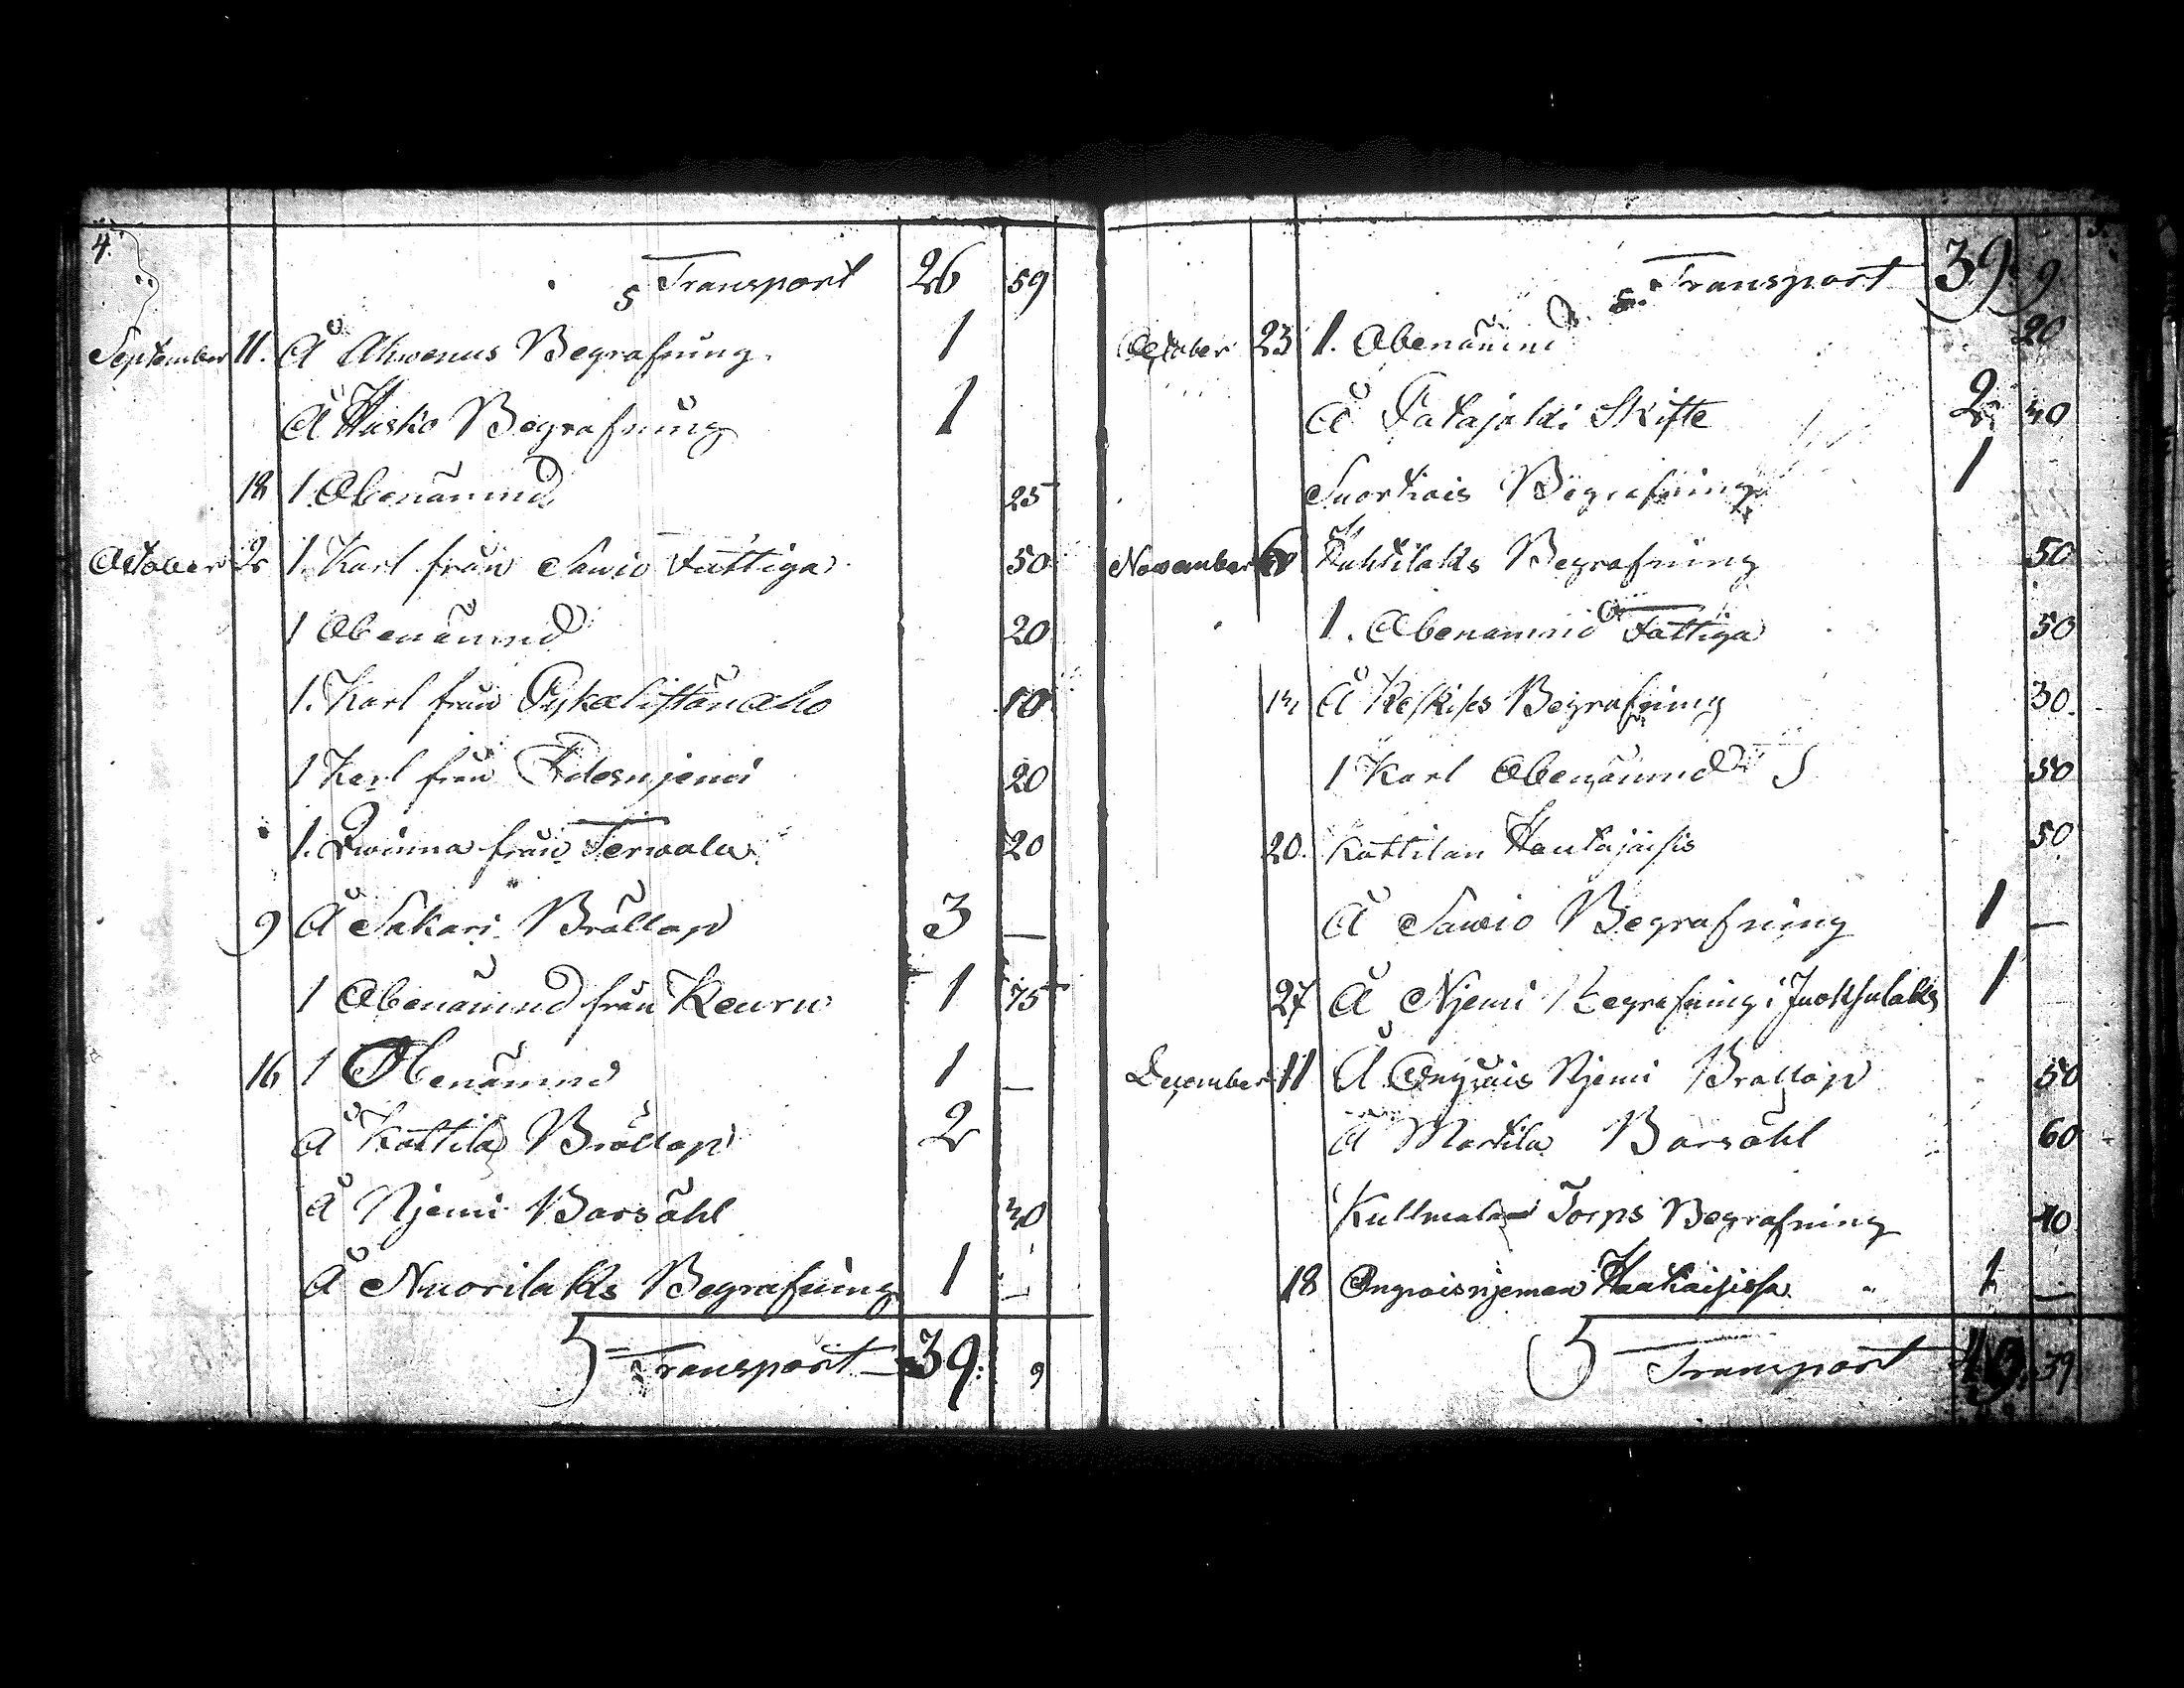 4.
Transport 26 59
September 11. Å Ahvenus Begrafning. 1
Å Husko Begrafning 1
18 1 Obenämnd 25
October 2 1. Karl från Sawio Fattiga 50
1 Obenämnd 20
1. Karl från 10
1 Karl från 20
1. Qwinna från Terwala 20
9 Å Sakari Bröllop 3 —
1 Obenämnd från Keuru 1 75
16 1 Obenämnd 1 —
Å Kattila Bröllop 2
Å Njemi Barsöhl 40
Å Nuorilaks Begrafning 1 —
Transport 39. 9
5.
Transport 39. 9.
October 23 1. Obenämnd 20
Å Patajoki Skifte 2 40
Suorkais Begrafning 1
November 6 Huhtilaks Begrafning 50
1. Obenämnd Fattiga 50
Å Begrafning 30.
1 Karl Obenämnd 50
20. Kattilan Hautajaisis 50
Å Sawio Begrafning 1 —
27 Å Njemi Begrafning i 1
December 11 Å Njemi Bröllop 50
Å Martila Barsöhl 60
Torps Begrafning 40
18 1 —
Transport 49. 39